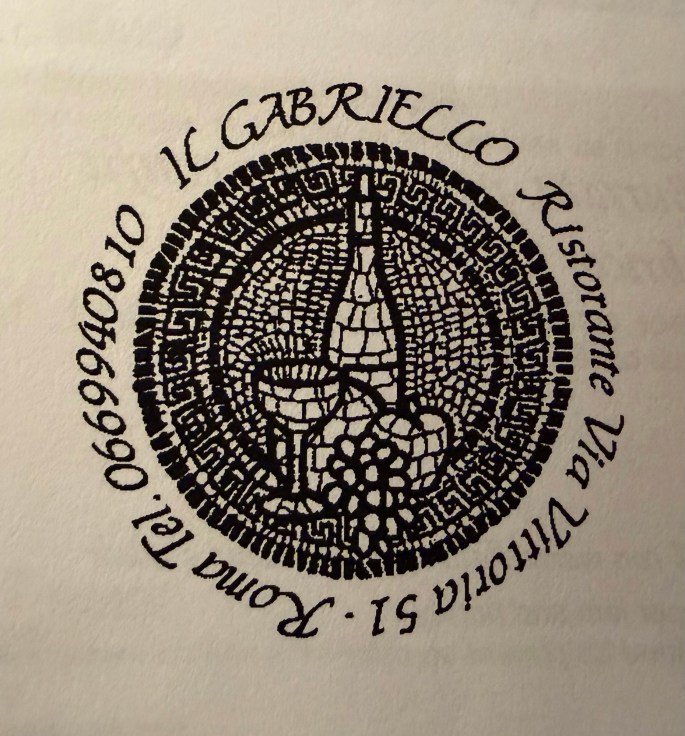 IL GABRIELLO Ristorante Via Vittoria 51 - Roma Tel. 0669940810